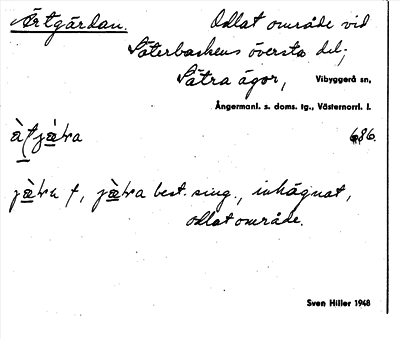 Ärtgärdan. Odlat område vid
Säterbackens översta del,
Sätra ägor, Vibyggerå sn,
Ångermanl. s. doms. tg., Västernorrl. l.
686.
best. sing., inhägnat,
odlat område.
Sven Hiller 1948